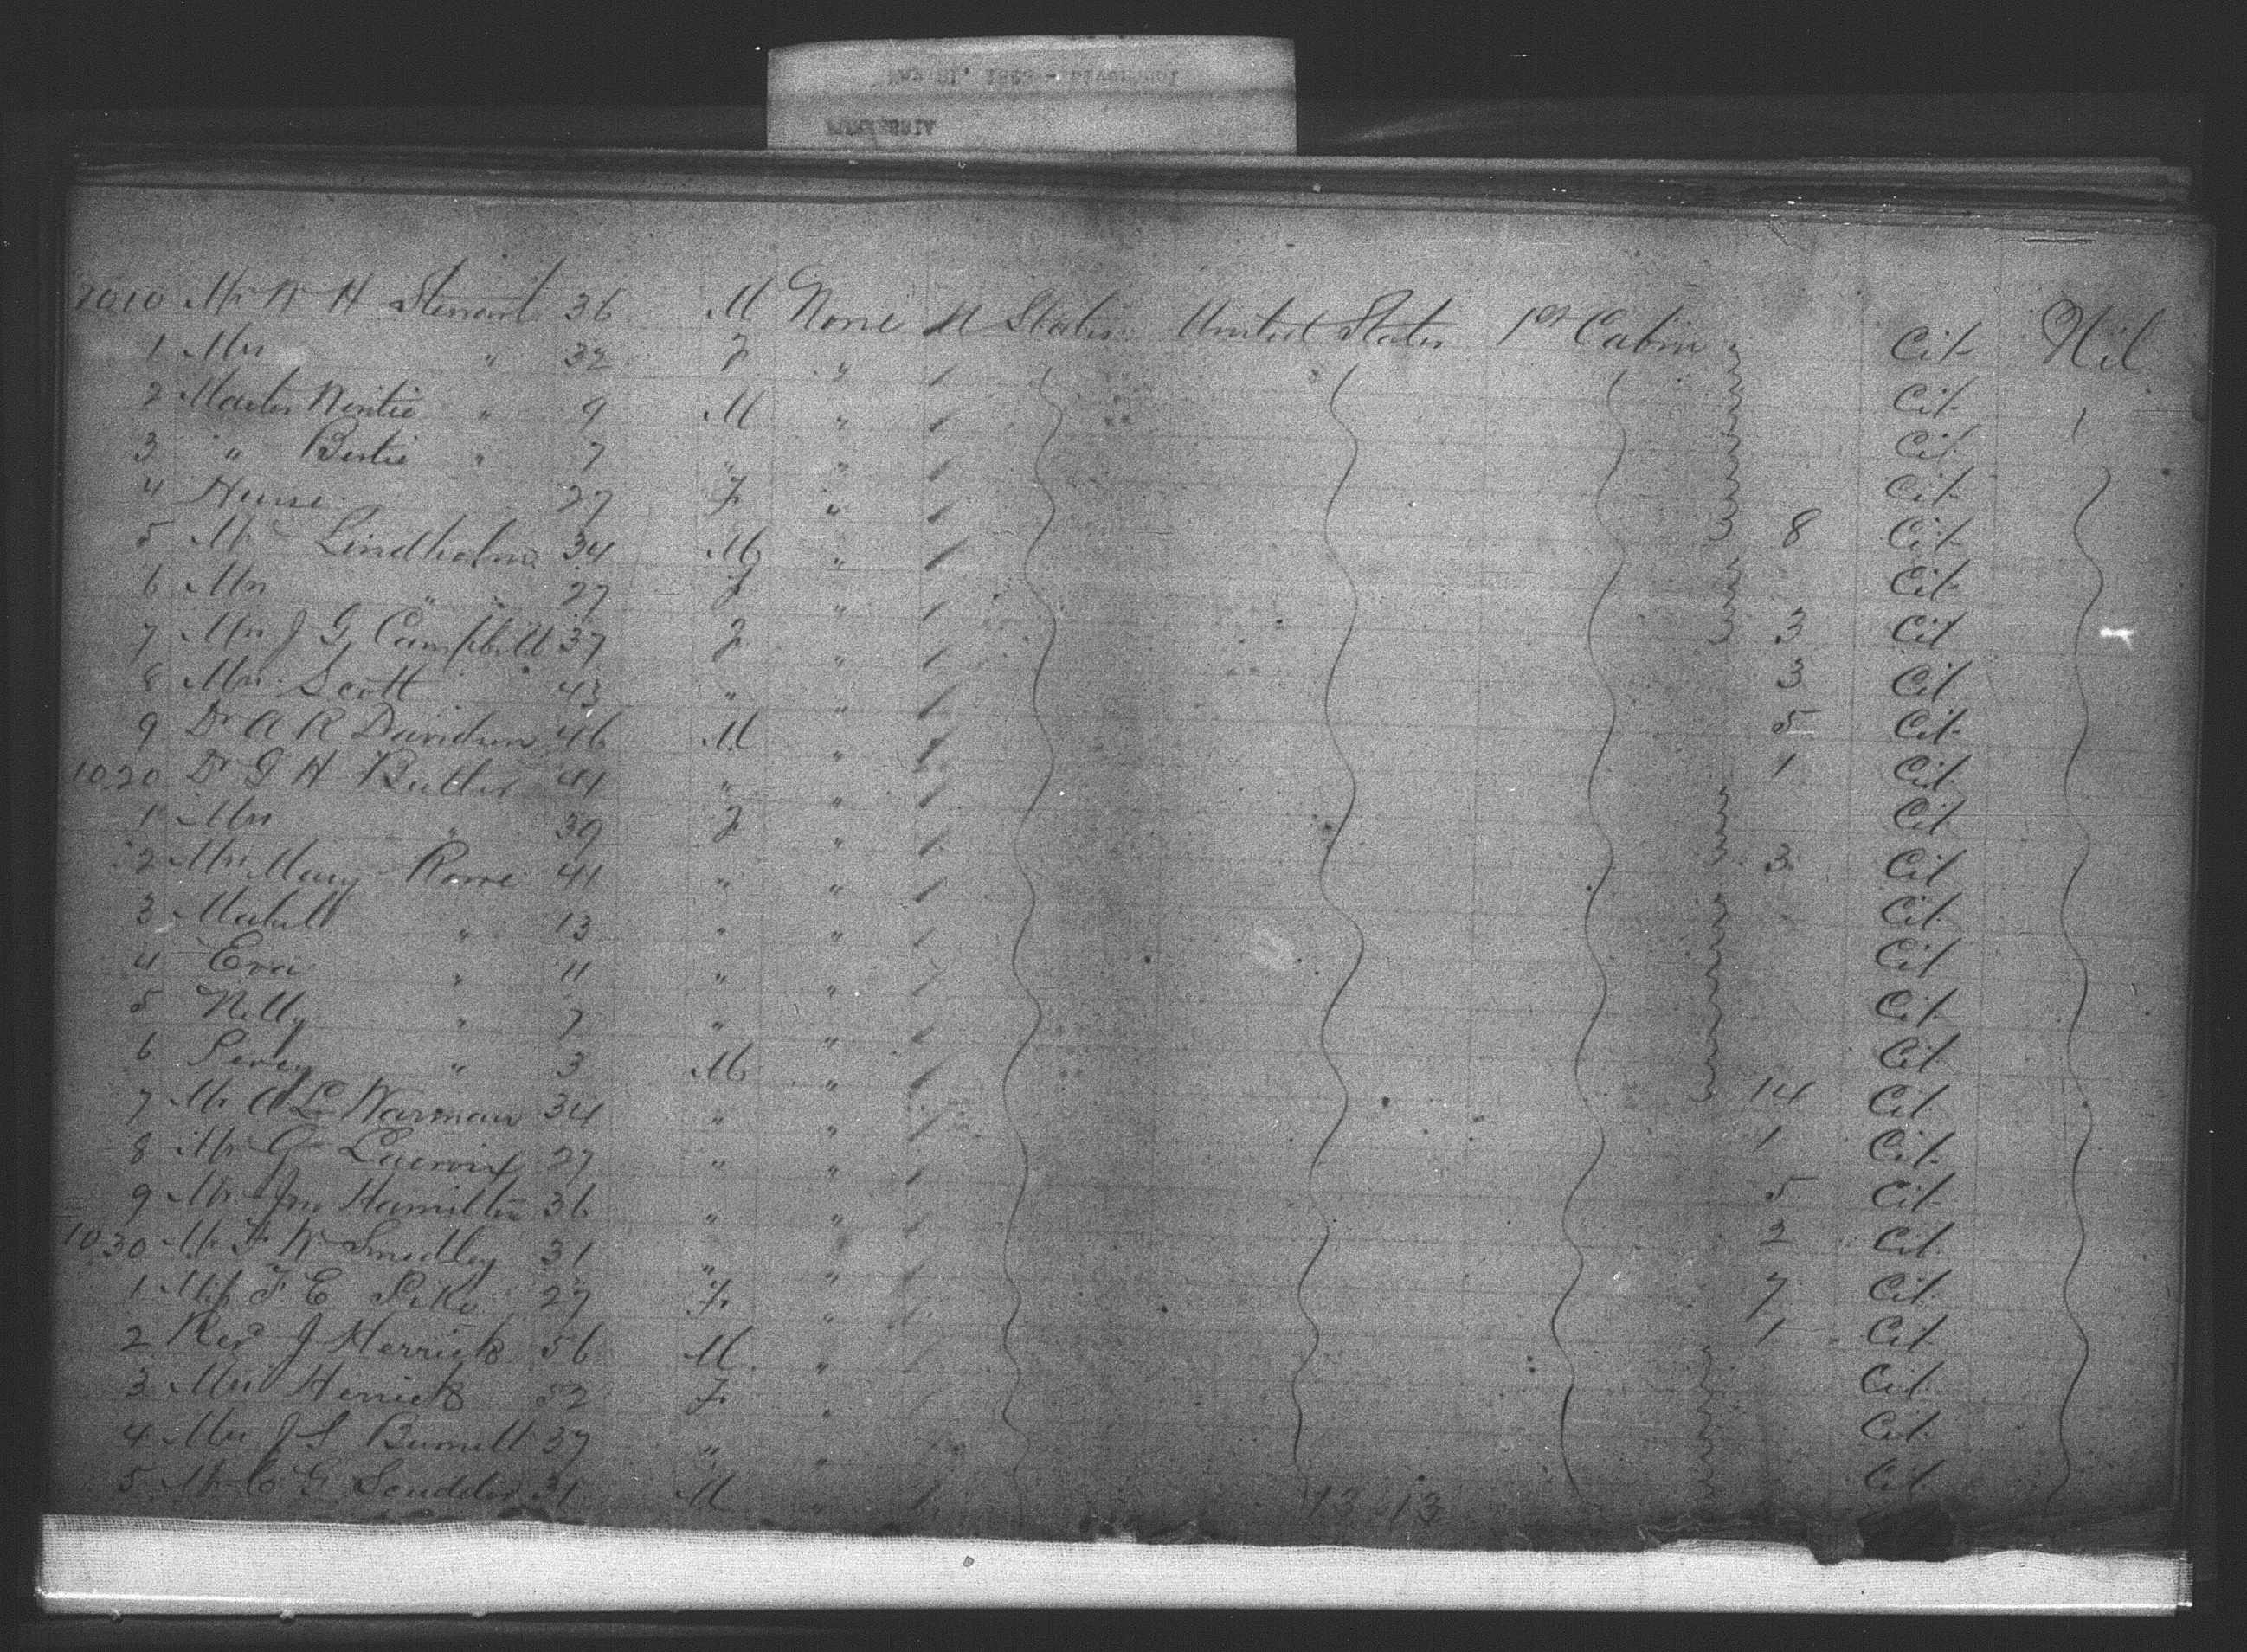 1010 Mr W H Stewart 36 M None U States United States 1st Cabin Cit Nil
1 Mrs " 32 F " / Cit
2 Master " 9 M " / Cit
3 " Bertie " 7 " " / Cit
4 Nurse 27 F " / 8 Cit
5 Mr Lindholm 34 M " / Cit
6 Mrs " " 27 F " / 3 Cit
7 Mrs J G Campbell 37 F " / 3 Cit
8 Mrs Scott 43 " " / 5 Cit
9 Dr A R Davidson 46 M " / 1 Cit
1020 Dr G H Butler 44 " " / Cit
1 Mrs " 39 F " / 3 Cit
2 Mrs Mary Rowe 41 " " / Cit
3 " 13 " " / Cit
4 Eva " 11 " " / Cit
5 Nelly " 7 " " / Cit
6 Percy " 3 M " / 14 Cit
7 Mr A L Warman 34 " " / 1 Cit
8 Mr G Lacroix 27 " " / 5 Cit
9 Mr Jno Hamilton 36 " " / 2 Cit
1030 Mr F W Smedley 31 " " / 7 Cit
1 Miss F E 27 F " / 1 Cit
2 Revd J Herrick 56 M " / Cit
3 Mrs Herrick 52 F " Cit
4 Mrs J S 37 " " Cit
5 Mr C G Scudder 31 M " /
13 13